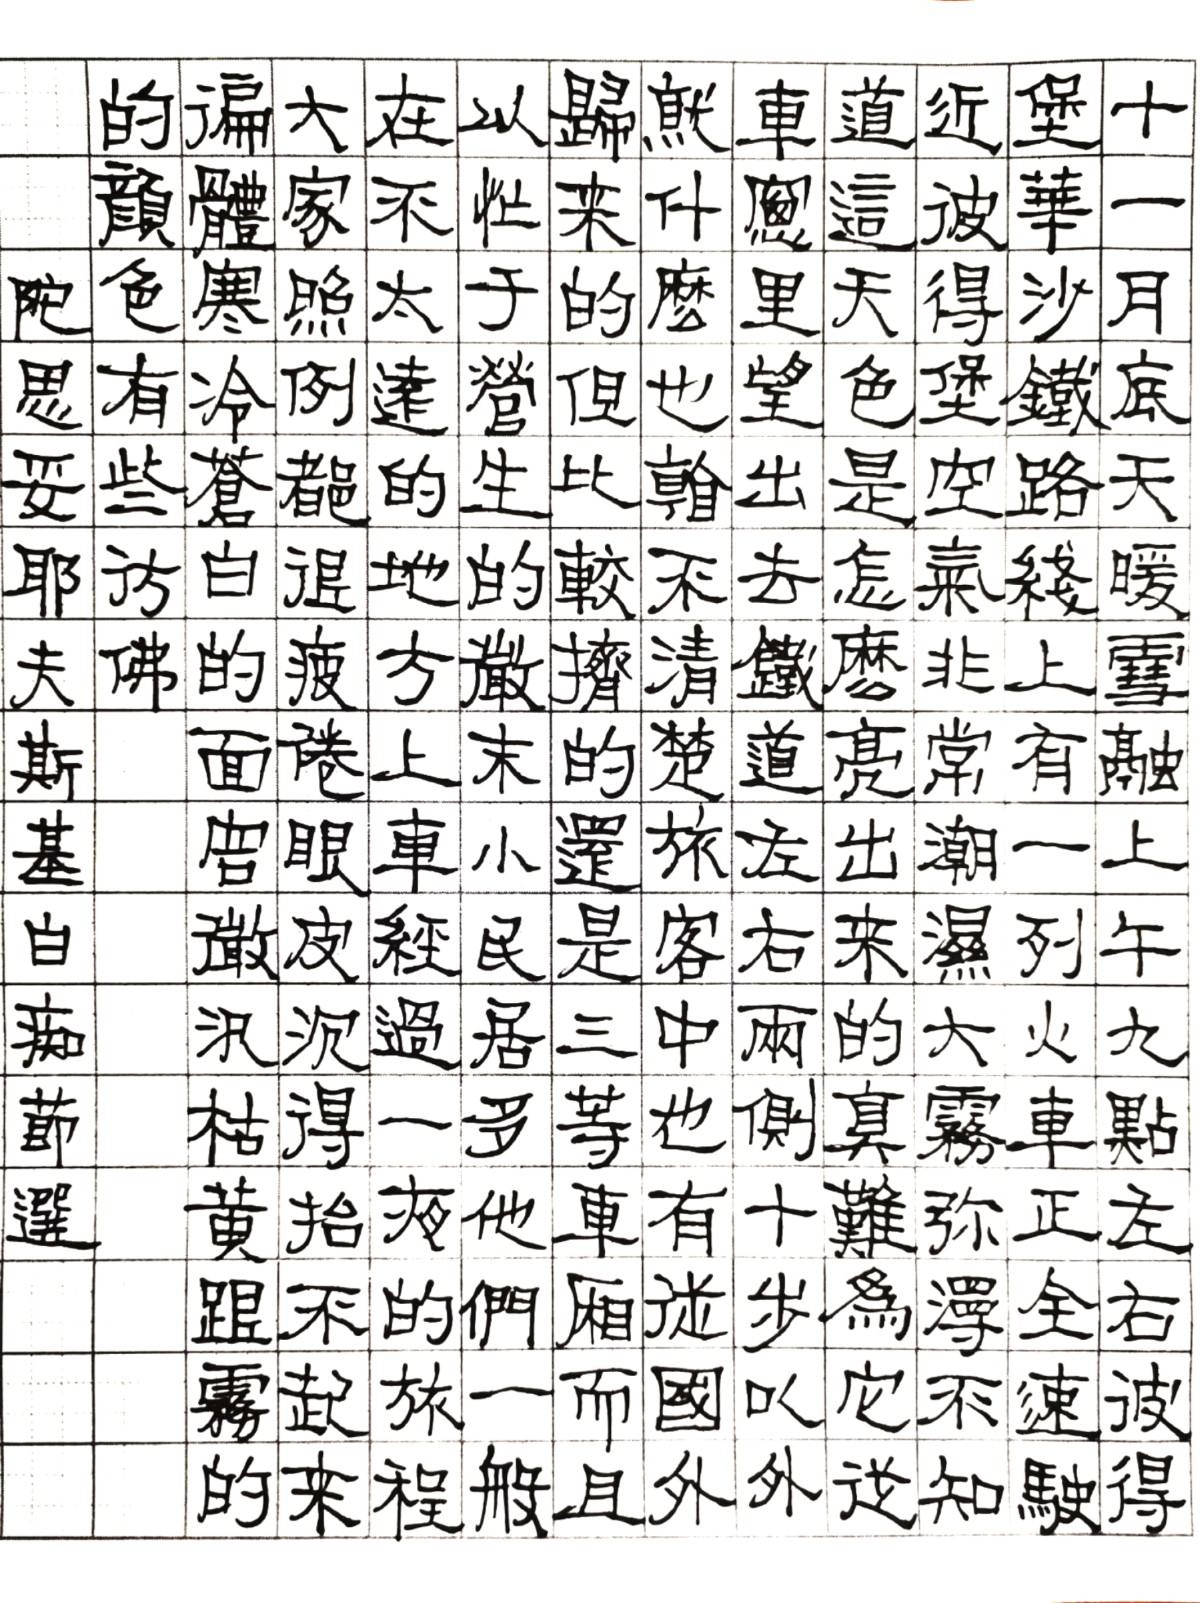 十一月底天暖雪融上午九點左右彼得
堡華沙鐵路綫上有一列火車正全速駛
近彼得堡空氣非常潮濕大霧弥漫不知
道這天色是怎麼亮出来的真難為它従
車窻里望出去鐵道左右兩側十步以外
就什麼也看不清楚旅客中也有従國外
歸来的但比較擠的還是三等車厢而且
以忙于營生的微末小民居多他們一般
在不太遠的地方上車經過一夜的旅程
大家照例都很疲倦眼皮沉得抬不起来
徧體寒冷蒼白的面容微汎枯黄跟霧的
的顔色有些彷佛
陀思妥耶夫斯基白痴節選